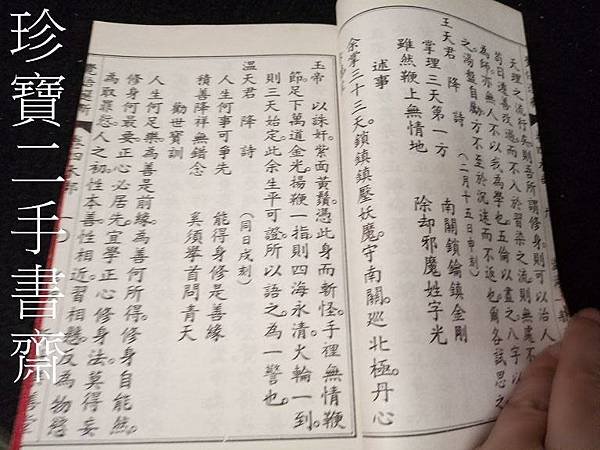 珍寶二手書齋
天理之流行矣則吾所謂修身則可以治人
苟曰遷善改過而不入於習染之流則無處不
為師亦無人不以我為學也五倫以盡之八字以
之渴盤自勵方不至於沉迷而不返也爾各試思之
(二月十五日申刻)
王天君 降 詩
掌理三天第一方 南關鎖鑰鎮金剛
雖然鞭上無情地 除却邪魔姓字光
述事
余掌三十三天。鎖鎮鎮壓妖魔。守南關巡北極。丹心
玉帝。以誅奸。紫面黃鬚。憑此身而斬怪。手裡無情鞭
節足下萬道金光。揚鞭一指則四海永清。火輪一到
則三天始定。此余生平可證所以語之。為一警也。
(同日戌刻)
溫天君 降 詩
人生何事可爭先 能得身修是善緣
積善降祥無錯念 奚須舉首問青天
勸世寶訓
人生何足樂。為善是前緣。為善何所得。修身自能然。
修身何最要。正心必居先。宜學正心修身法。莫得妄
為取罪愆。人之初性本善。性相近習相懸。反為物慾
覺悟選新
卷四木部
一〇